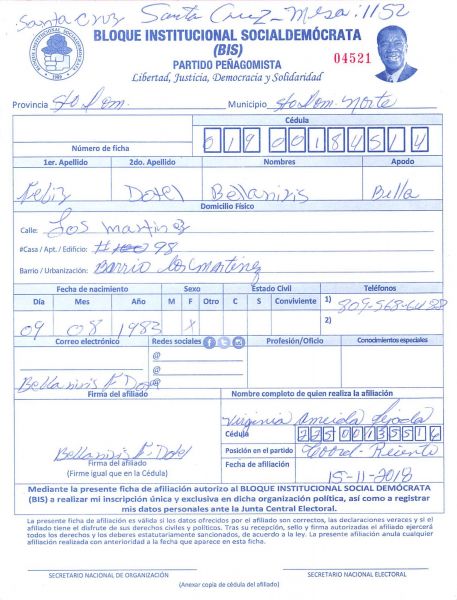 Santa Cruz Santa Cruz - Mesa: 1152
BLOQUE INSTITUCIONAL SOCIALDEMÓCRATA
(BIS)
PARTIDO PEÑAGOMISTA
04521
Libertad, Justicia, Democracia y Solidaridad
Provincia Sto Dom. Municipio Sto Dom. Norte
Cédula
Número de ficha 019 00184514
1er. Apellido 2do. Apellido Nombres Apodo
Feliz Dotel Bellanisis Bella
Domicilio Físico
Calle: Los Martinez
#Casa / Apt. / Edificio: # 98
Barrio / Urbanización: Barrio los Martinez
Fecha de nacimiento Sexo Estado Civil Teléfonos
Día Mes Año M F Otro C S Conviviente 1) 809-568-6438
09 08 1983 X 2)
Correo electrónico Redes sociales Profesión/Oficio Conocimientos especiales
@
@
Bellanisis F Dotel @
Firma del afiliado Nombre completo de quien realiza la afiliación
Virginia Almeida Tejada
Cédula 22500135516
Bellanisis F. Dotel Posición en el partido Coord-Recinto
Firma del afiliado Fecha de afiliación 15-11-2018
(Firme igual que en la Cédula)
Mediante la presente ficha de afiliación autorizo al BLOQUE INSTITUCIONAL SOCIAL DEMÓCRATA
(BIS) a realizar mi inscripción única y exclusiva en dicha organización política, así como a registrar
mis datos personales ante la Junta Central Electoral.
La presente ficha de afiliación es válida si los datos ofrecidos por el afiliado son correctos, las declaraciones veraces y si el
afiliado tiene el disfrute de sus derechos civiles y políticos. Tras su recepción, sello y firma autorizadas el afiliado ejercerá
todos los derechos y los deberes estatutariamente sancionados, de acuerdo a la ley. La presente afiliación anula cualquier
afiliación realizada con anterioridad a la fecha que aparece en esta ficha.
SECRETARIO NACIONAL DE ORGANIZACIÓN SECRETARIO NACIONAL ELECTORAL
(Anexar copia de cédula del afiliado)